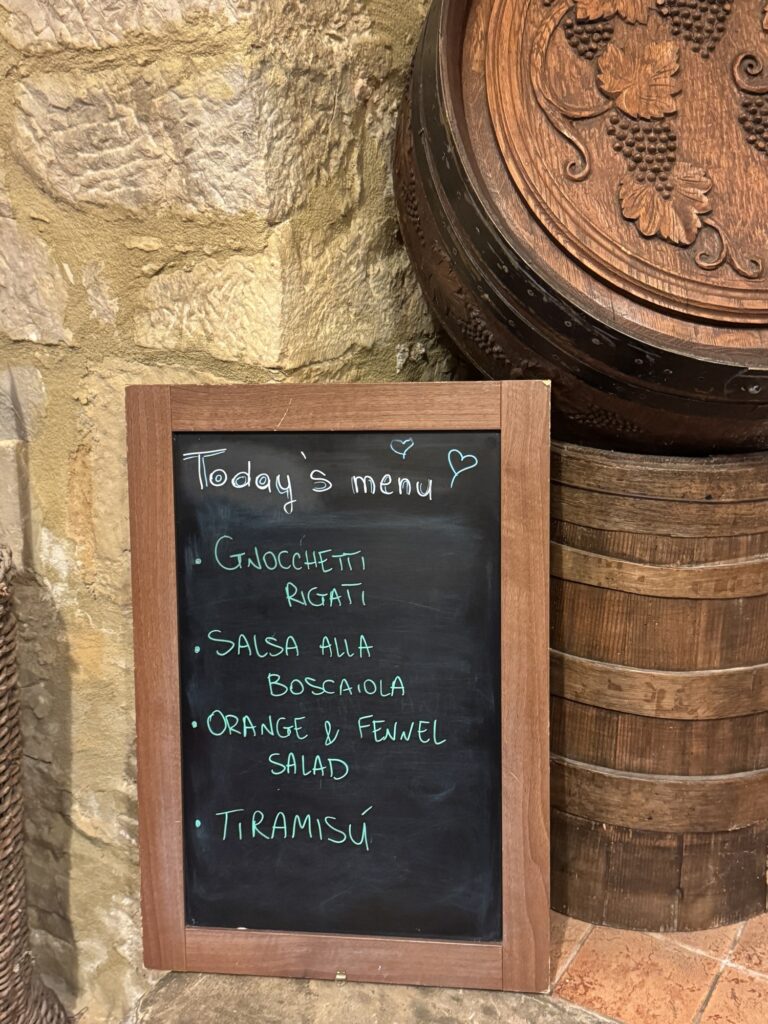 Today's menu
• GNOCCHETTI
RIGATI
• SALSA ALLA
BOSCAIOLA
• ORANGE & FENNEL
SALAD
• TIRAMISÚ